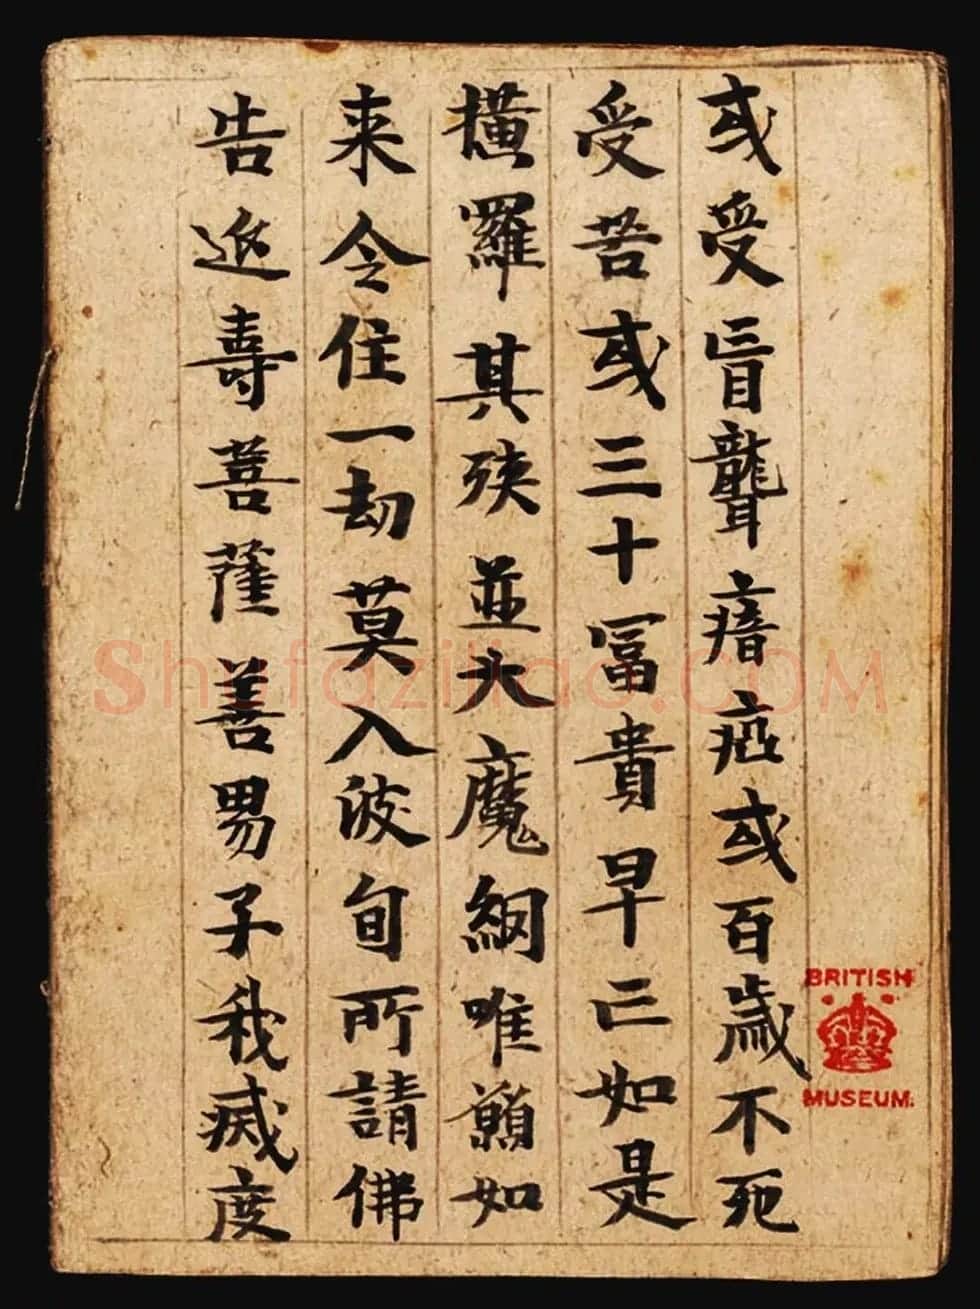 或受盲聾瘖瘂或百歲不死
受苦或三十冨貴早亡如是
橫羅其殃並大魔網唯願如
来令住一劫莫入波旬所請佛
告延壽菩薩善男子我滅度
BRITISH
MUSEUM.
Shufaziliao.COM